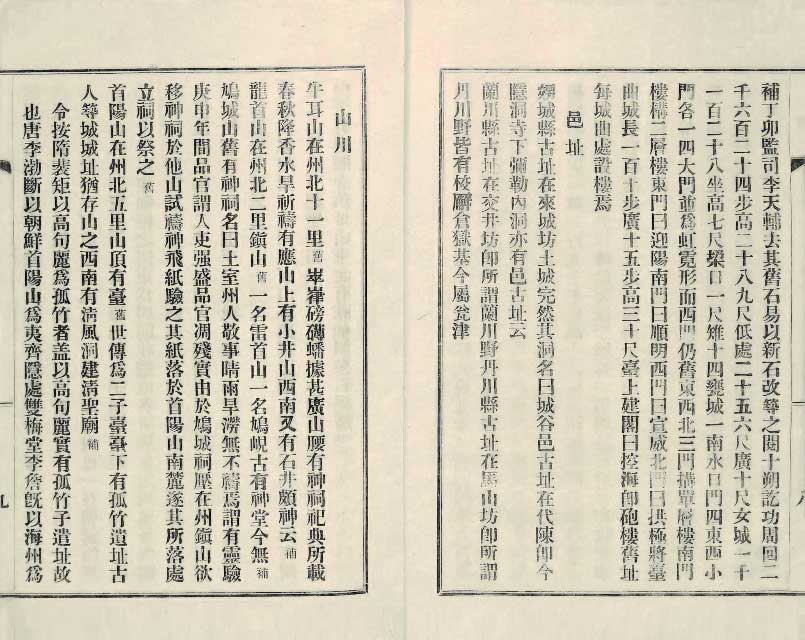 補丁卯監司李天輔去其舊石易以新石改築之閱十朔訖功周回二
千六百二十四步高二十八九尺低處二十五六尺廣十尺女城一千
一百二十八坐高七尺梁口一尺雉十四甕城一南水口門四東西小
門各一四大門並爲虹霓形而西門仍舊東西北三門搆單層樓南門
樓構二層樓東門曰迎陽南門曰順明西門曰宣威北門曰拱極將臺
曲城長一百十步廣十五步高三十尺臺上建閣曰控海卽砲樓舊址
每城曲處設樓焉
邑址
古址在東城坊土城宛然其洞名曰城谷邑古址在代陳卽今
隱洞寺下彌勒內洞亦有邑古址云
蘭川縣古址在交井坊卽所謂蘭川野丹川縣古址在馬山坊卽所謂
丹川野皆有校廨倉獄基今屬瓮津
山川
牛耳山在州北十一里舊崒嵂磅礴蟠據甚廣山腰有神祠祀典所載
春秋降香水旱祈禱有應山上有小井山西南又有石井頗神云補
龍首山在州北二里鎭山舊一名雷首山一名鳩峴古有神堂今無補
鳩城山舊有神祠名曰土室州人敬事晴雨旱澇無不禱焉謂有靈驗
庚申年間品官謂人吏强盛品官凋殘實由於鳩城祠壓在州鎭山欲
移神祠於他山試禱神飛紙驗之其紙落於首陽山南麓遂其所落處
立祠以祭之舊
首陽山在州北五里山頂有臺舊世傳爲二子臺臺下有孤竹遺址古
人築城城址猶存山之西南有淸風洞建淸聖廟補
令按隋裴矩以高句麗爲孤竹者盖以高句麗實有孤竹子遺址故
也唐李渤斷以朝鮮首陽山爲夷齊隱處雙梅堂李詹旣以海州爲
八
九